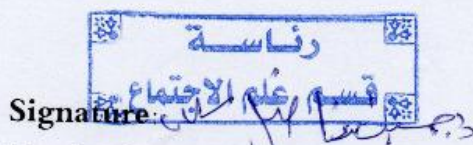 رئاسة
قسم علم الاجتماع
Signature: